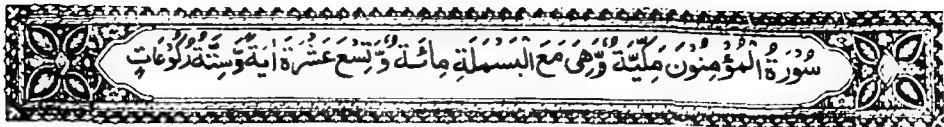 سُوْرَةُ الْمُؤْمِنُوْنَ مَكِّيَّةٌ وَّهِىَ مَعَ الْبَسْمَلَةِ مِائَةٌ وَّتِسْعَ عَشَرَةَ اٰيَةً وَّسِتَّةُ رُكُوْعَاتٍ